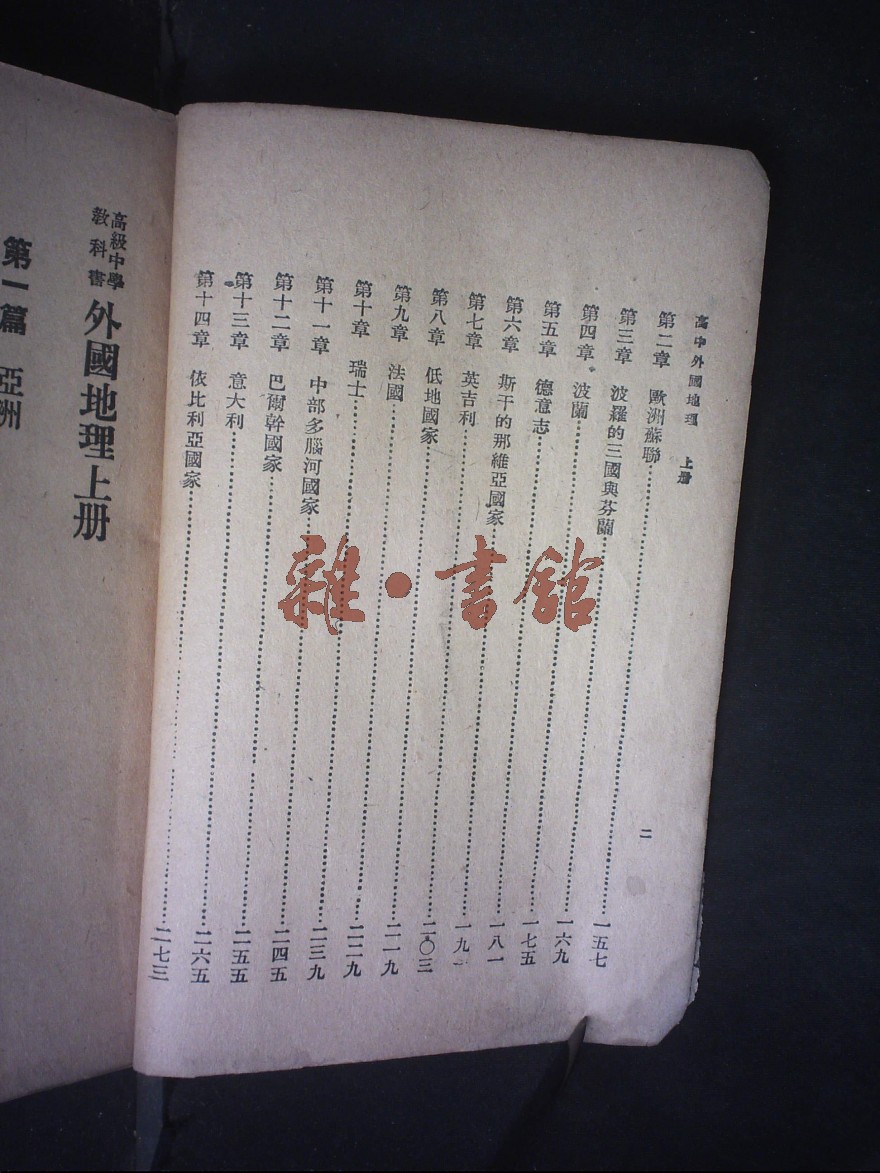 高中外國地理 上册
二
第二章 歐洲蘇聯……一五七
第三章 波羅的三國與芬蘭……一六九
第四章 波蘭……一七五
第五章 德意志……一八一
第六章 斯干的那維亞國家……一九一
第七章 英吉利……二〇三
第八章 低地國家……二一九
第九章 法國……二二九
第十章 瑞士……二三九
第十一章 中部多腦河國家……二四五
第十二章 巴爾幹國家……二五五
第十三章 意大利……二六五
第十四章 依比利亞國家……二七三
高級中學
教科書
外國地理上册
第一篇 亞洲
雜·書館